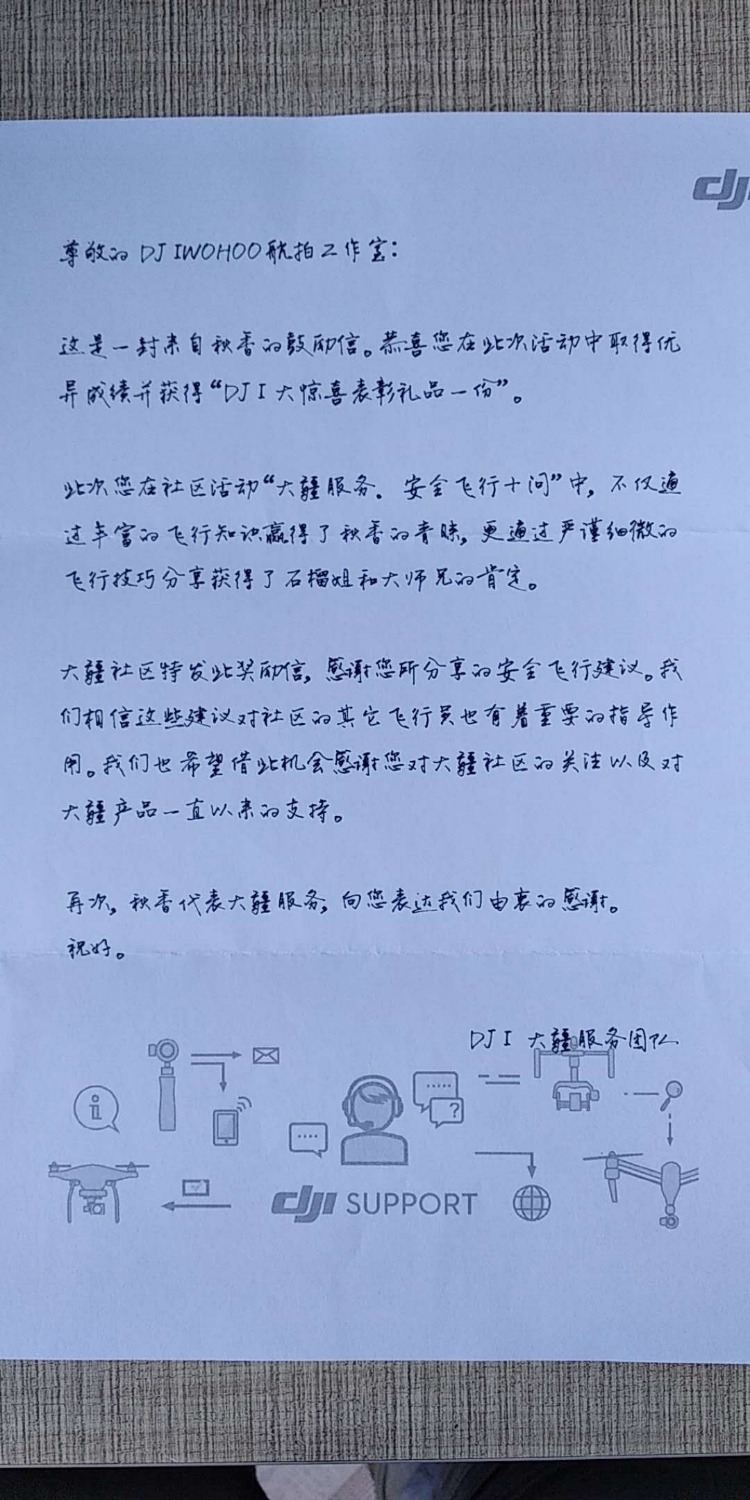 dji
尊敬的DJIWOHOO航拍工作室：
这是一封来自秋香的鼓励信。恭喜您在此次活动中取得优
异成绩并获得“DJI大惊喜表彰礼品一份”。
此次您在社区活动“大疆服务．安全飞行十问”中，不仅通
过丰富的飞行知识赢得了秋香的青睐，更通过严谨细微的
飞行技巧分享获得了石榴姐和大师兄的肯定。
大疆社区特发此奖励信，感谢您所分享的安全飞行建议。我
们相信这些建议对社区的其它飞行员也有着重要的指导作
用。我们也希望借此机会感谢您对大疆社区的关注以及对
大疆产品一直以来的支持。
再次，秋香代表大疆服务，向您表达我们由衷的感谢。
祝好。
DJI 大疆服务团队
dji SUPPORT